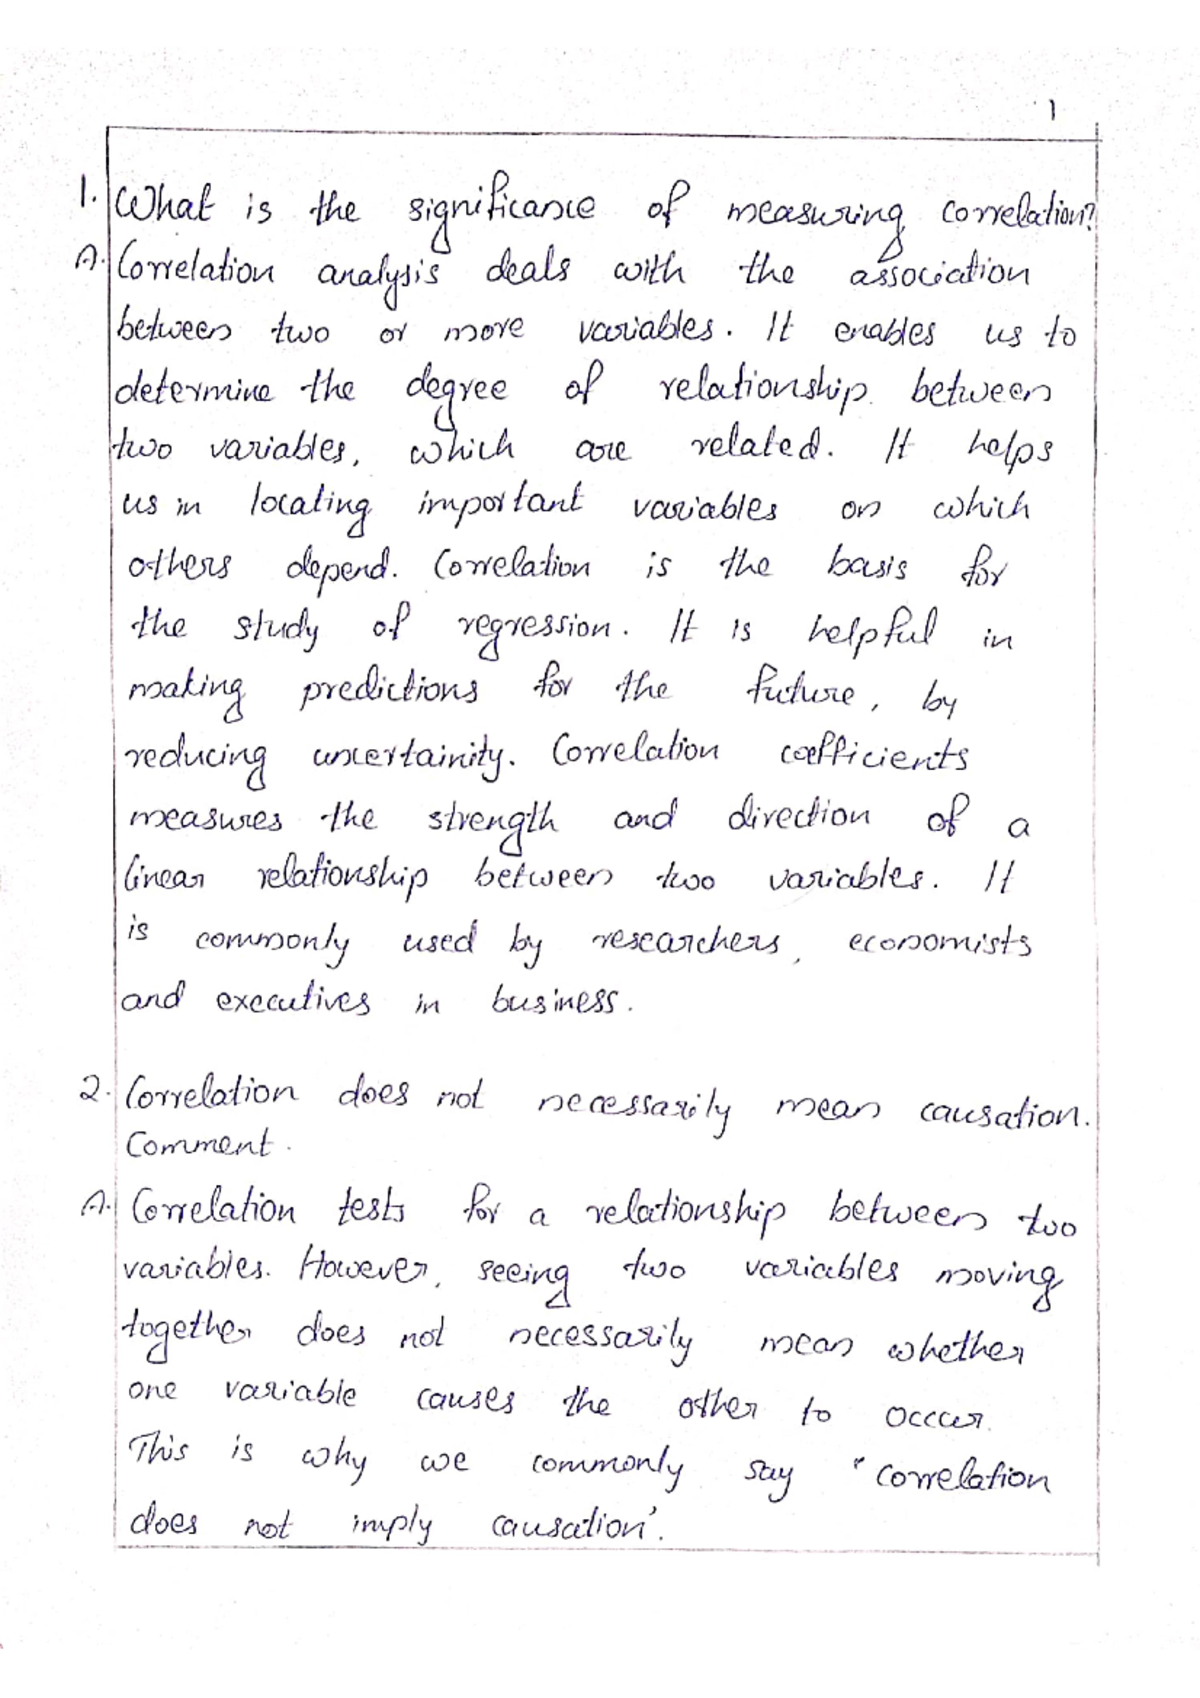 1
1. What is the significance of measuring correlation?
A. Correlation analysis deals with the association
between two or more variables. It enables us to
determine the degree of relationship between
two variables, which are related. It helps
us in locating important variables on which
others depend. Correlation is the basis for
the study of regression. It is helpful in
making predictions for the future, by
reducing uncertainity. Correlation coefficients
measures the strength and direction of a
linear relationship between two variables. It
is commonly used by researchers, economists
and executives in business.
2. Correlation does not necessarily mean causation.
Comment.
A. Correlation tests for a relationship between two
variables. However, seeing two variables moving
together does not necessarily mean whether
one variable causes the other to occur.
This is why we commonly say "correlation
does not imply causation'.